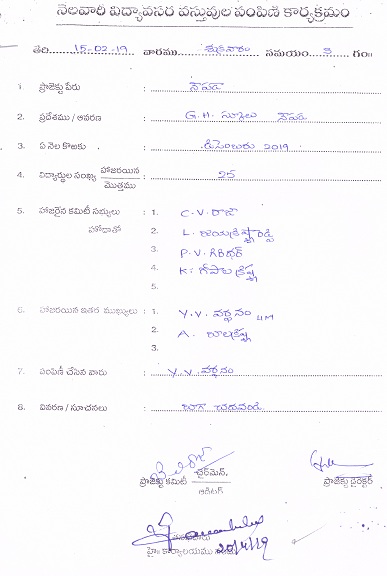 నెలవారీ విద్యావసర వస్తువుల పంపిణి కార్యక్రమం
తేది. 15-02-19 వారము సమయం 3 గం॥
1. ప్రాజెక్టు పేరు :
2. ప్రదేశము / ఆవరణ : G.H. స్కూలు
3. ఏ నెల కొఱకు : డిసెంబరు 2019
4. విద్యార్థుల సంఖ్య హాజరయిన / మొత్తము : 25
5. హాజరైన కమిటీ సభ్యులు : 1. C.V. రాజా
హోదాతో 2. L. జయక్రిష్ణారెడ్డి
3. P.V.
4. K. గోపాలక్రిష్ణ
5.
6. హాజరయిన ఇతర ముఖ్యులు : 1. Y.V. వర్ధనం HM
2. A. బాలక్రిష్ణ
3.
7. పంపిణీ చేసిన వారు : Y.V. వర్ధనం
8. వివరణ / సూచనలు : బాగా చదవండి
ప్రాజెక్టు కమిటీ చైర్‌మెన్, ప్రాజెక్టు డైరెక్టర్
ఆడిటర్
కార్యాలయము 20/4/19